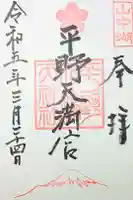 山中湖
奉拝
平野天満宮
令和五年三月二十四日